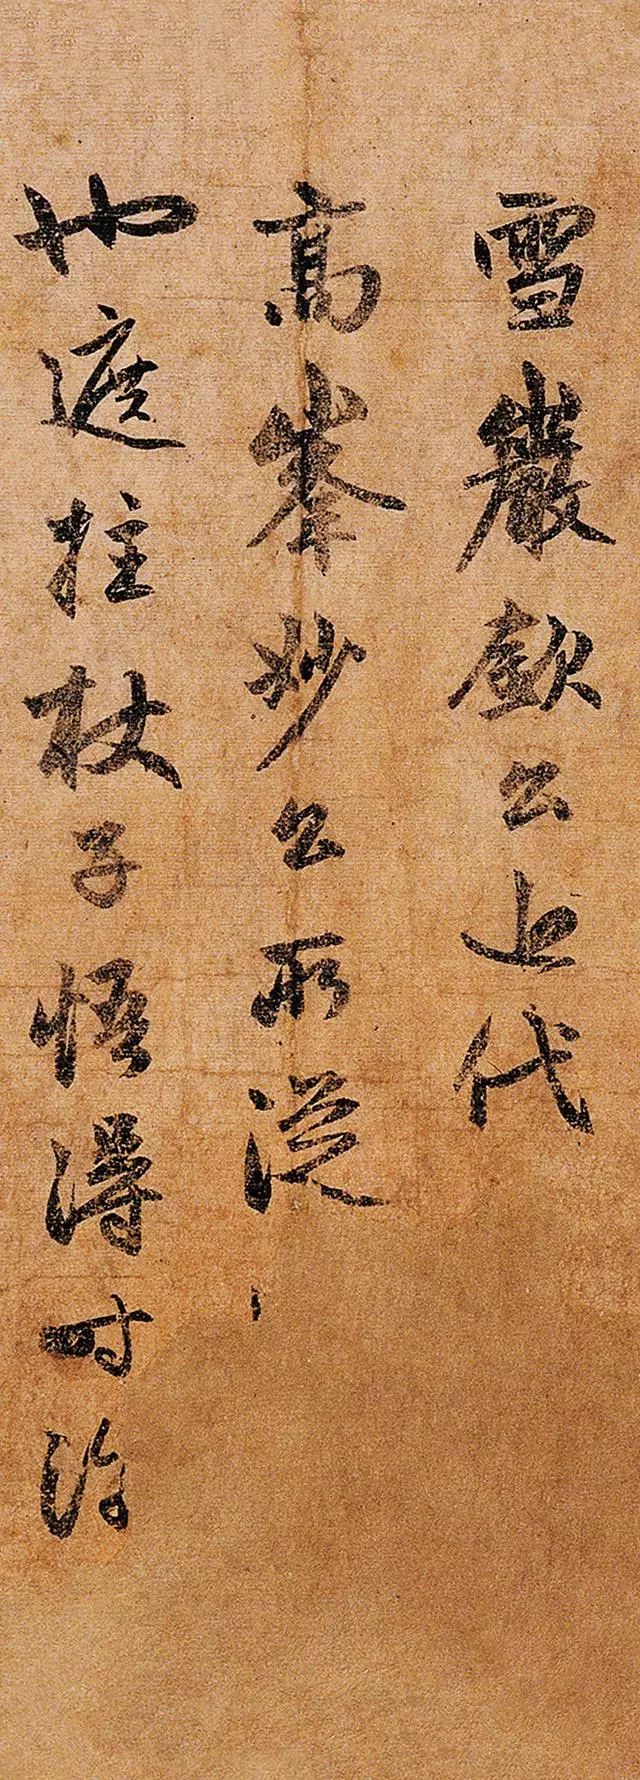 雪巖欽公世代
高峯妙公所從
也遮拄杖子悟得时